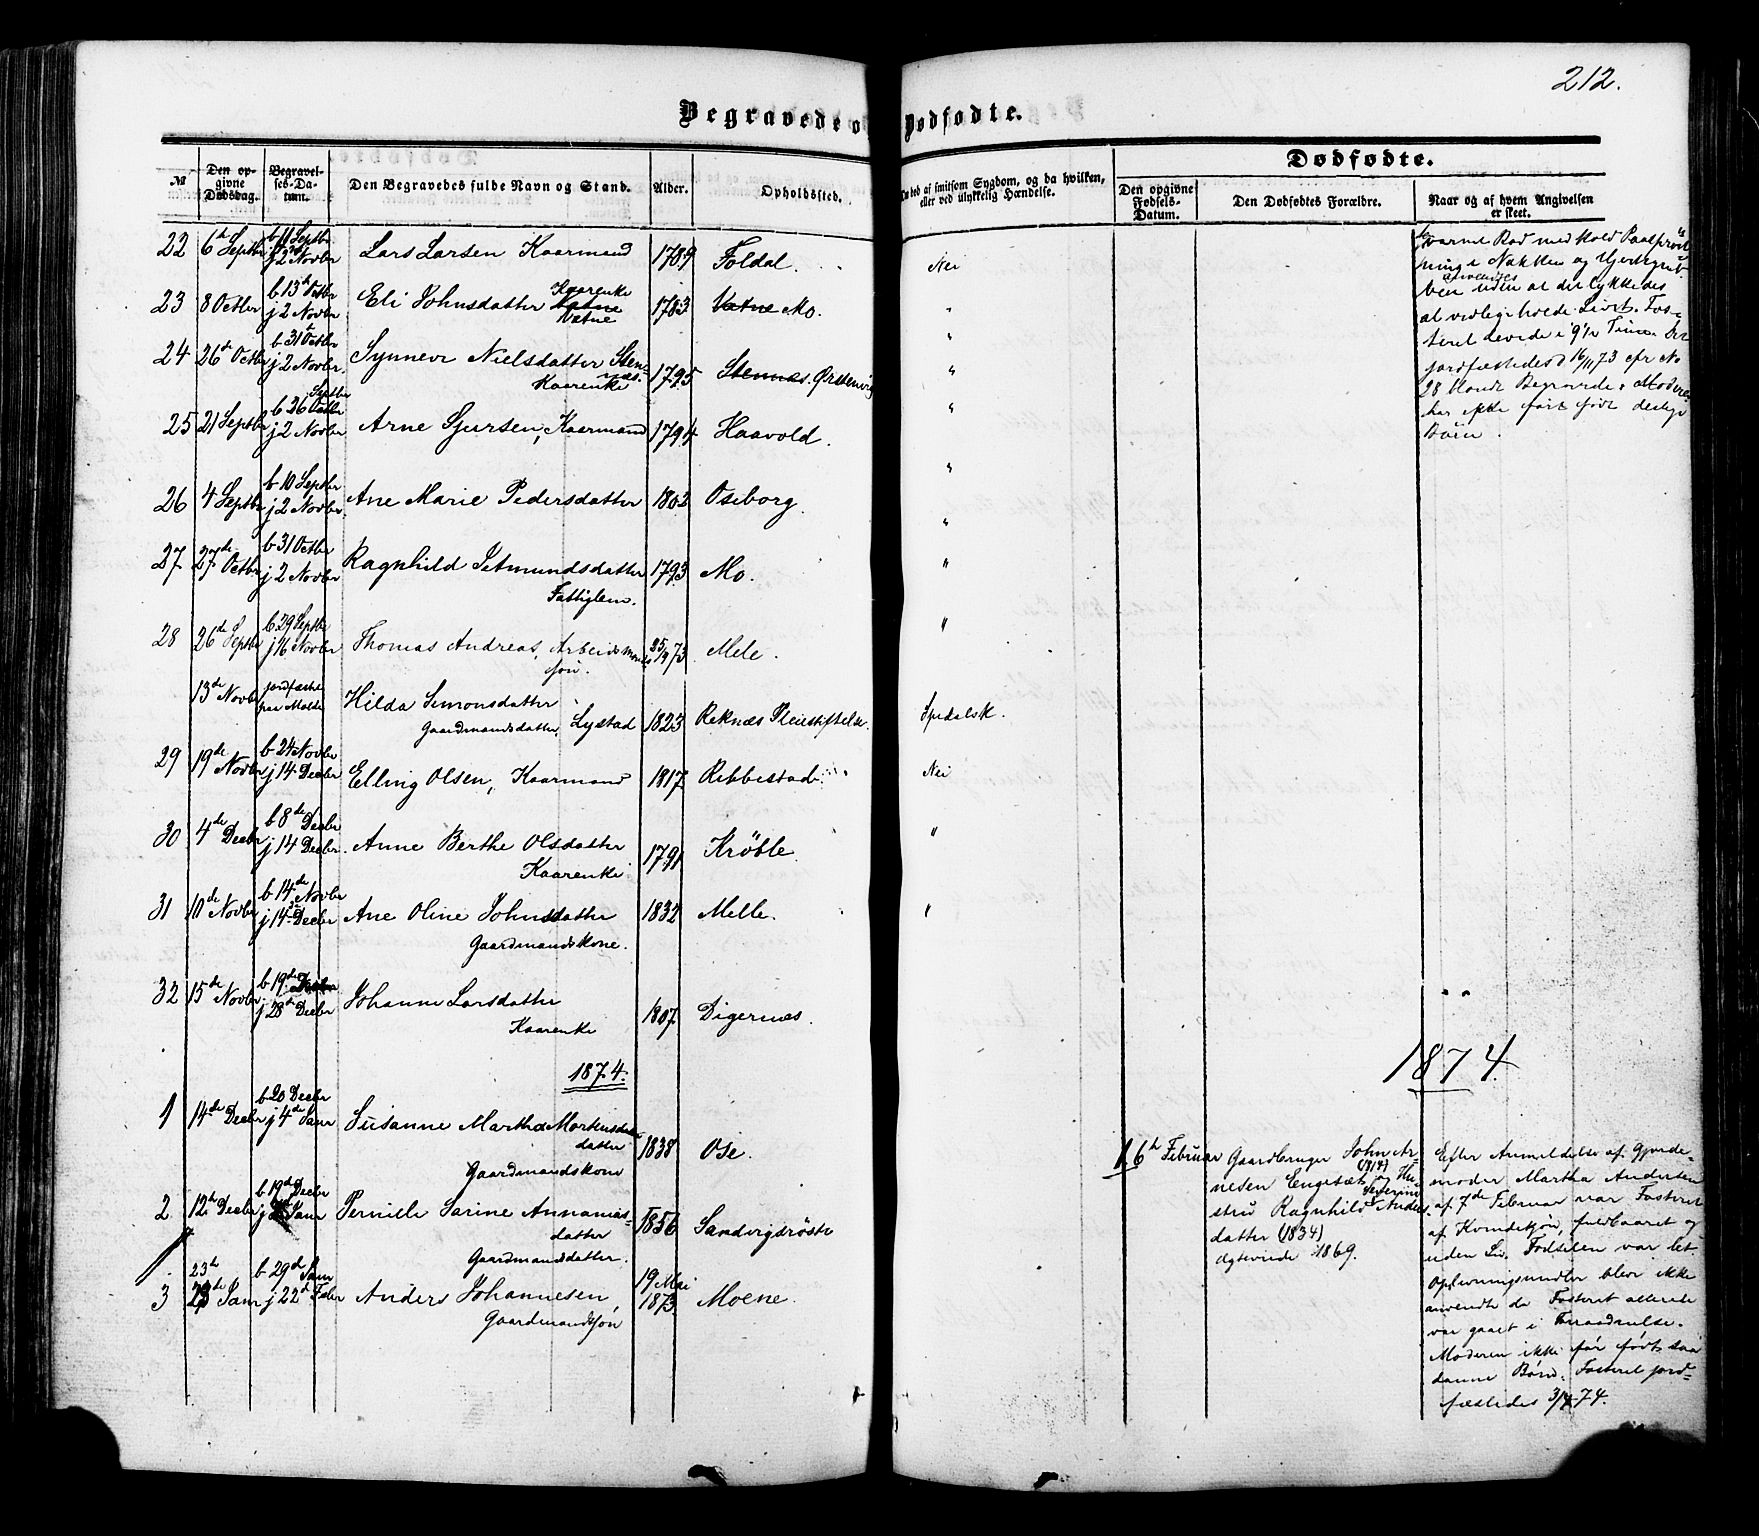 212.
Begravede o
Dødfødte.
№
Den opgivne Dødsdag.
Begravelses-Datum.
Den Begravedes fulde Navn og Stand.
Alder.
Opholdssted.
ved af smitsom Sygdom, og da hvilken, eller ved ulykkelig Hændelse.
Dødfødte.
Den opgivne Fødsels-Datum.
Den Dødfødtes Forældre.
Naar og af hvem Angivelsen er skeet.
22 6te Septbr b 11 Septbr j 2 Novbr Lars Larsen Kaarmand 1789 Foldal. Nei
23 8 Octbr b 13de Octbr j 2 Novbr Eli Johnsdatter Kaarenke Vatne 1783 Vatne Mo. "
24 26de Octbr b 31 Octbr j 2 Novbr. Synneve Nielsdatter Stennæs. Kaarenke 1795 Stennæs. Ørstenvig "
25 21 Septbr b 26 Septbr Octbr j 2 Novbr Arne Sjursen, Kaarmand 1794 Haavold. "
26 4 Septbr b 10 Septbr j 2 Novbr. Ane Marie Pedersdatter 1802 Oseborg. "
27 27de Octbr b 31 Octbr j 2 Novbr Ragnhild Setmundsdatter Fattiglem. 1793 Mo. "
28 26de Septbr b 29 Septbr j 16 Novbr Thomas Andreas, Arbeidsmands søn. 25/9 73 Mele. "
13de Novbr jordfæstet paa Molde Hilda Simonsdatter Gaardmandsdatter, Lystad 1823 Reknæs Pleiestiftelse. Spedalsk.
29 19de Novbr b 24 Novbr j 14 Decbr Elling Olsen, Kaarmand 1817 Ribbestad. Nei
30 4de Decbr b 8de Decbr j 14 Decbr. Anne Berthe Olsdatter Kaarenke 1791 Krøble "
31 10de Novbr b 14de Novbr j 14de Decbr Ane Oline Johnsdatter Gaardmandskone. 1832 Melle. "
32 15de Novbr b 19de j 28de Decbr Johanne Larsdatter Kaarenke 1807 Digernæs.
1874.
1 14de Decbr b 20 Decbr j 4de Janr Susanne Martha Mortensdatter datter Gaardmandskone 1838 Ose.
2 12te Decbr b 19de Decbr j Janr Pernille Sarine Annaniasdatter Gaardmandsdatter. 1856 Sandvigsrøste
3 23de Janr b 29de Janr j 22de Febr Anders Johannesen, Gaardmandssøn 19 Mai 1873 Moene.
varme Bad med Kold
i Nakken og Hjertegruben
anvendes
uden at det lykkedes
at vedligeholde Livet. Fosteret levede i 9½ Time.
jordfæstedes 16/11 73 cfr No
28 blandt Begravede. Moderen
har ikke før født deslige
Børn.
1874.
1. 6te Februar
Gaardbruger John Arnesen (1814) Engesæt og Hustru Ragnhild Severine Andersdatter (1834)
ægteviede 1869.
Efter Anmeldelse af Gjordemoder Martha Andersen
af 7de Februar var Fosteret
af Kvindekjøn, fuldbaaret og
uden Liv. Fødselen var let
Oplivningsmidler blev ikke
anvendte da Fosteret allerede
var gaaet i Forraadnelse.
Moderen ikke før født saadanne Børn. Fosteret jordfæstedes 3/4 74.